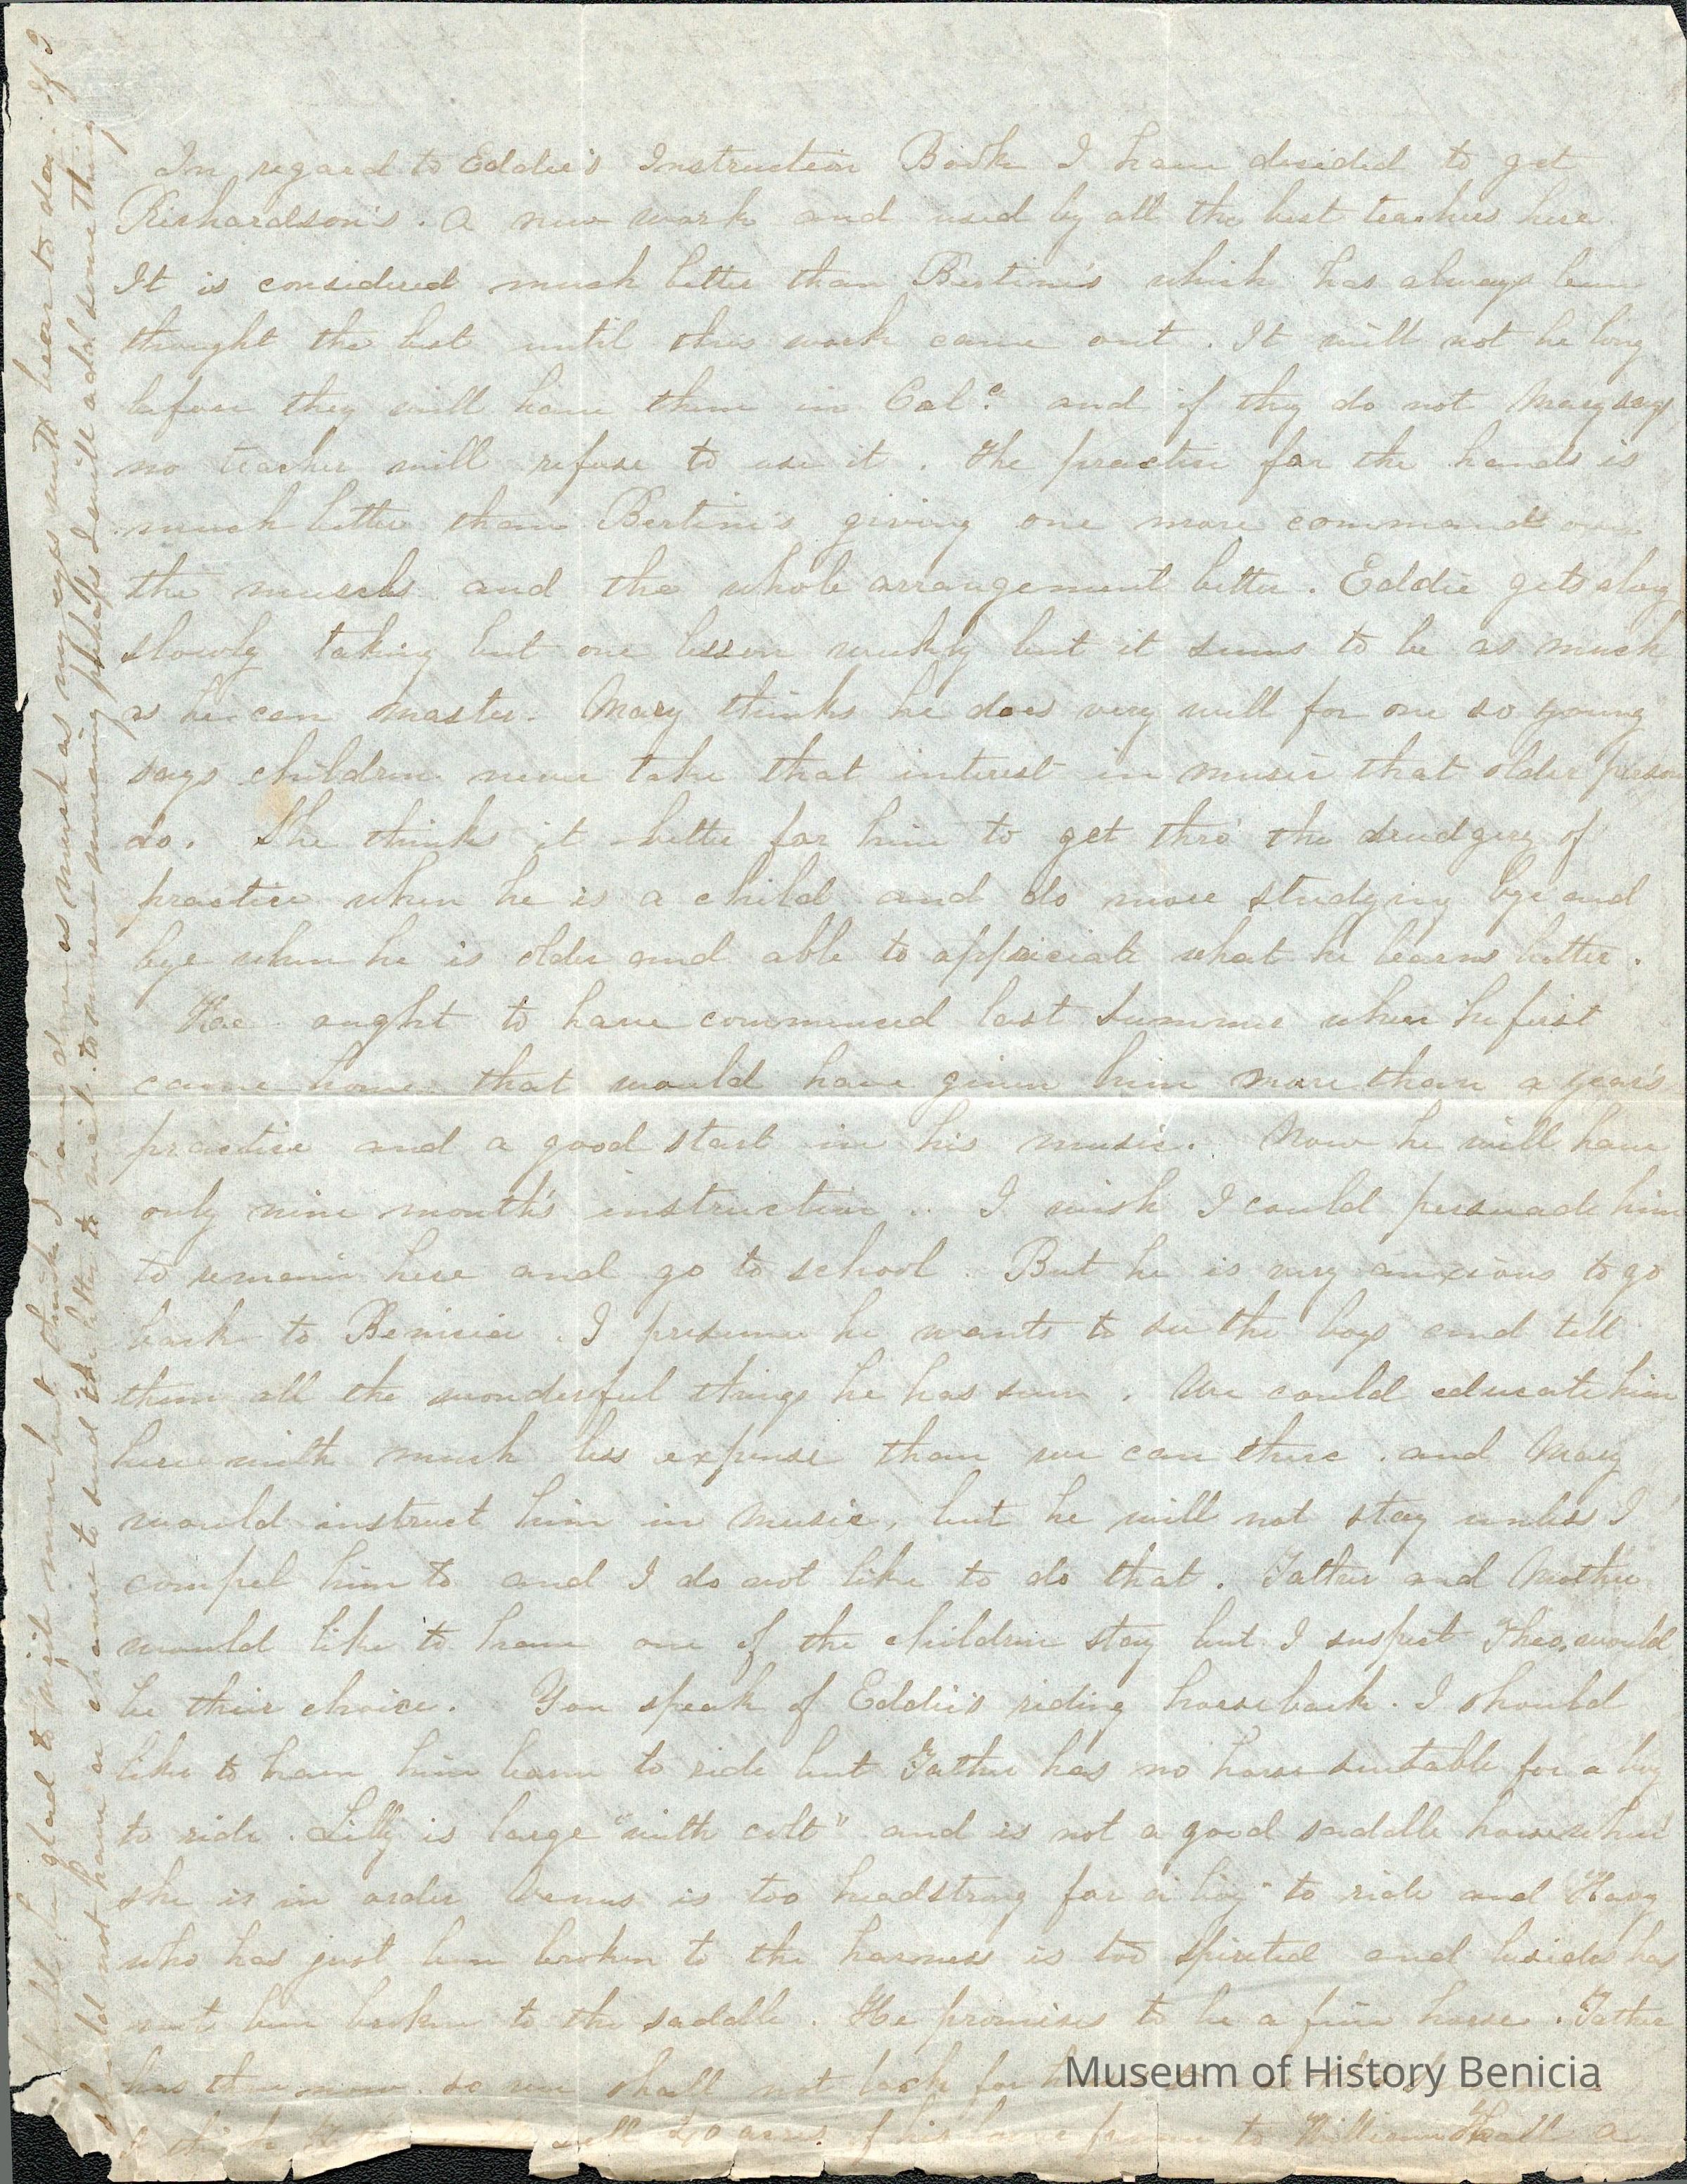 In regard to Eddie's Instruction Book I have decided to get
Richardson's. A new work and used by all the best teachers here.
It is considered much better than Bertini's which has always been
thought the best until this work came out. It will not be long
before they will have them in Cal.ᵃ and if they do not Mary says
no teacher will refuse to use it. The practice for the hands is
much better than Bertini's giving one more command over
the muscles and the whole arrangement better. Eddie gets along
slowly taking but one lesson weekly but it seems to be as much
as he can master. Mary thinks he does very well for one so young
says children never take that interest in music that older persons
do. She thinks it better for him to get thro' the drudgery of
practice when he is a child and do more studying bye and
bye when he is older and able to appriciate what he learns better.
He ought to have commenced last Summer when he first
came home that would have given him more than a year's
practice and a good start in his music. Now he will have
only nine month's instruction.. I wish I could persuade him
to remain here and go to school. But he is very anxious to go
back to Benicia. I presume he wants to see the boys and tell
them all the wonderful things he has seen. We could educate him
here with much less expense than we can there. and Mary
would instruct him in Music, but he will not stay unless I
compel him to and I do not like to do that. Father and Mother
would like to have one of the children stay but I suspect Theo. would
be their choice. You speak of Eddie's riding horseback. I should
like to have him learn to ride but Father has no horse suitable for a boy
to ride. Lilly is large "with colt" and is not a good saddle horse when
she is in order Venus is too headstrong for a boy to ride and
who has just been broken to the harness is too spirited and besides has
not been broken to the saddle. He promises to be a fine horse. Father
has three now. so we shall not lack for
sell 20 acres of his to William Hall a
glad to write more but think I have done as much as my eyes will bear to day. If I
should not have a chance to send the letter to mail tomorrow morning perhaps I will add some thing
Museum of History Benicia